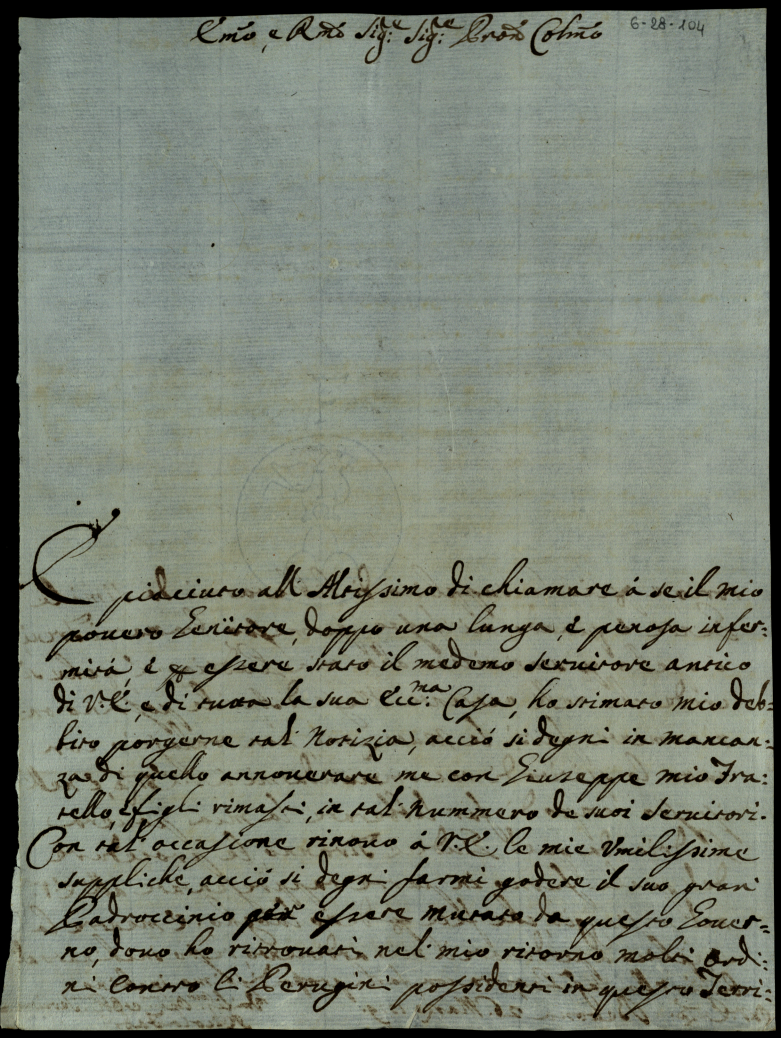 Emo, e Rmo Sig.re Sig.re Pron Colmo
6-28-104
È piaciuto all Altissimo di chiamare á se il mio
povero Genitore, doppo una lunga, e penosa infer=
mitá, e p essere stato il medemo servitore antico
di V.E. e di tutta la sua Ecc.ma Casa, ho stimato mio deb=
bito porgerne tal Notizia, acció si degni in mancan=
za di quello annoverare me con Giuseppe mio Fra=
tello, figli rimasti, in tal Nummero de suoi Servitori.
Con tal occasione rinovo á V.E. le mie Umilissime
suppliche, acció si degni farmi godere il suo gran
Padroccinio per essere mutato da questo Gover=
no, dove ho ritrovati nel mio ritorno molti ordi=
ni contro li Perugini possidenti in questo Terri=